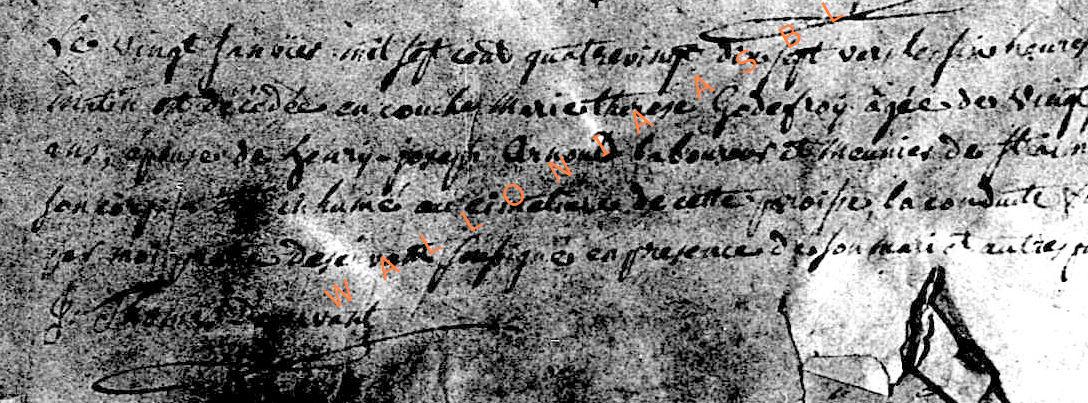 Le vingt janvier mil sept cent quatrevingt dixsept vers les six heures
matin est décédée en couche marie therese Godefroy âgée de vingt
ans, epouse de henry-joseph Arnould laboureur et meunier de
son corps enhumé au cimetiere de cette paroisse, la conduite
par moi desservant soussigné en presence de son mari et autres
J. Thomas desservant
WALLONIA ASBL